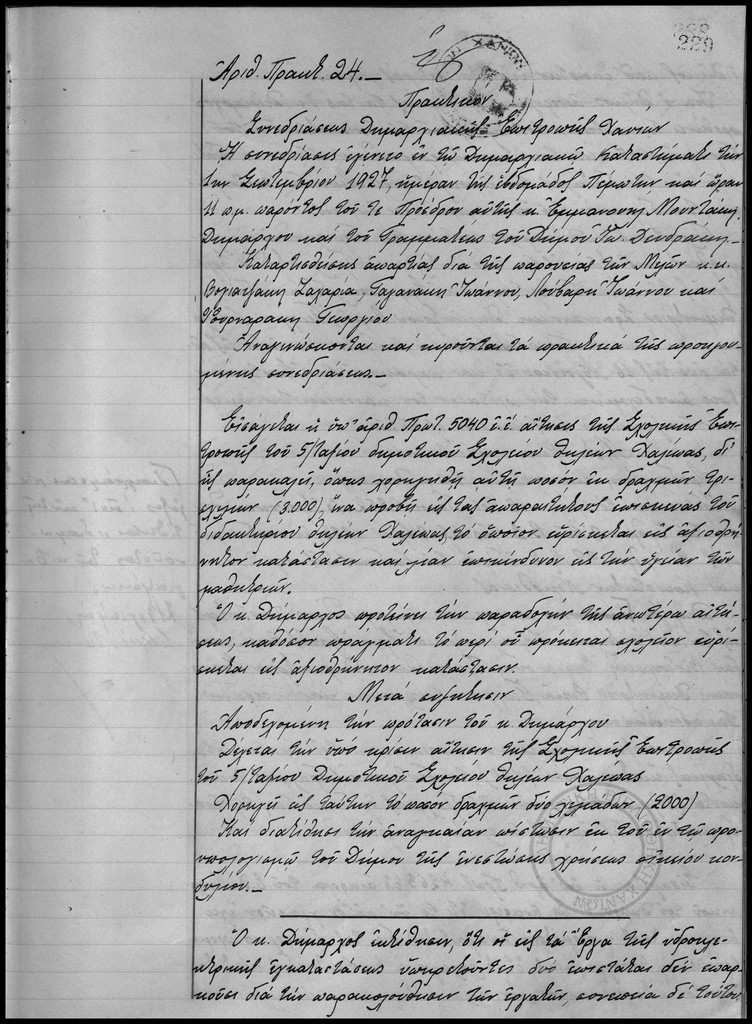 229
Ἀριθ. Πρακτ. 24.—
Πρακτικὸν
Συνεδριάσεως Δημαρχιακῆς Ἐπιτροπῆς Χανίων
Ἡ συνεδρίασις ἐγένετο ἐν τῷ Δημαρχιακῷ Καταστήματι τὴν
1ην Σεπτεμβρίου 1927, ἡμέραν τῆς ἑβδομάδος Πέμπτην καὶ ὥραν
11 πμ. παρόντος τοῦ τε Προέδρου αὐτῆς κ. Ἐμμανουὴλ Μουντάκη,
Δημάρχου καὶ τοῦ Γραμματέως τοῦ Δήμου Ἰω. Δενδράκη.—
Καταρτισθείσης ἀπαρτίας διὰ τῆς παρουσίας τῶν Μελῶν κ.κ.
Ζαχαρία, Γαγανάκη Ἰωάννου, Λούβαρη Ἰωάννου καὶ
Γεωργίου
Ἀναγινώσκονται καὶ κυροῦνται τὰ πρακτικὰ τῆς προηγου-
μένης συνεδριάσεως.—
Εἰσάγεται ἡ ὑπ' ἀριθ. Πρωτ. 5040 ἐ.ἔ. αἴτησις τῆς Σχολικῆς Ἐπι-
τροπῆς τοῦ 5/ταξίου δημοτικοῦ Σχολείου θηλέων Χαλέπας, δι'
ἧς παρακαλεῖ, ὅπως χορηγηθῇ αὐτῇ ποσὸν ἐκ δραχμῶν τρι-
σχιλίων (3.000), ἵνα προβῇ εἰς τὰς ἀπαραιτήτους ἐπισκευὰς τοῦ
διδακτηρίου θηλέων Χαλέπας, τὸ ὁποῖον εὑρίσκεται εἰς ἀξιοθρή-
νητον κατάστασιν καὶ λίαν ἐπικίνδυνον εἰς τὴν ὑγείαν τῶν
μαθητριῶν.
Ὁ κ. Δήμαρχος προτείνει τὴν παραδοχὴν τῆς ἀνωτέρω αἰτή-
σεως, καθόσον πράγματι τὸ περὶ οὗ πρόκειται σχολεῖον εὑρί-
σκεται εἰς ἀξιοθρήνητον κατάστασιν.
Μετὰ συζήτησιν
Ἀποδεχομένη τὴν πρότασιν τοῦ κ. Δημάρχου
Δέχεται τὴν ὑπὸ κρίσιν αἴτησιν τῆς Σχολικῆς Ἐπιτροπῆς
τοῦ 5/ταξίου Δημοτικοῦ Σχολείου θηλέων Χαλέπας
Χορηγεῖ εἰς ταύτην τὸ ποσὸν δραχμῶν δύο χιλιάδων (2000)
Καὶ διατίθησι τὴν ἀναγκαίαν πίστωσιν ἐκ τοῦ ἐν τῷ προ-
ϋπολογισμῷ τοῦ Δήμου τῆς ἐνεστώσης χρήσεως οἰκείου κον-
δυλίου.—
Ὁ κ. Δήμαρχος ἐκτίθησιν, ὅτι οἱ εἰς τὰ ἔργα τῆς ὑδροηλε-
κτρικῆς ἐγκαταστάσεως ὑπηρετοῦντες δύο ἐπιστάται δὲν ἐπαρ-
κοῦσι διὰ τὴν παρακολούθησιν τῶν ἐργατῶν, συνεπείᾳ δὲ τούτου